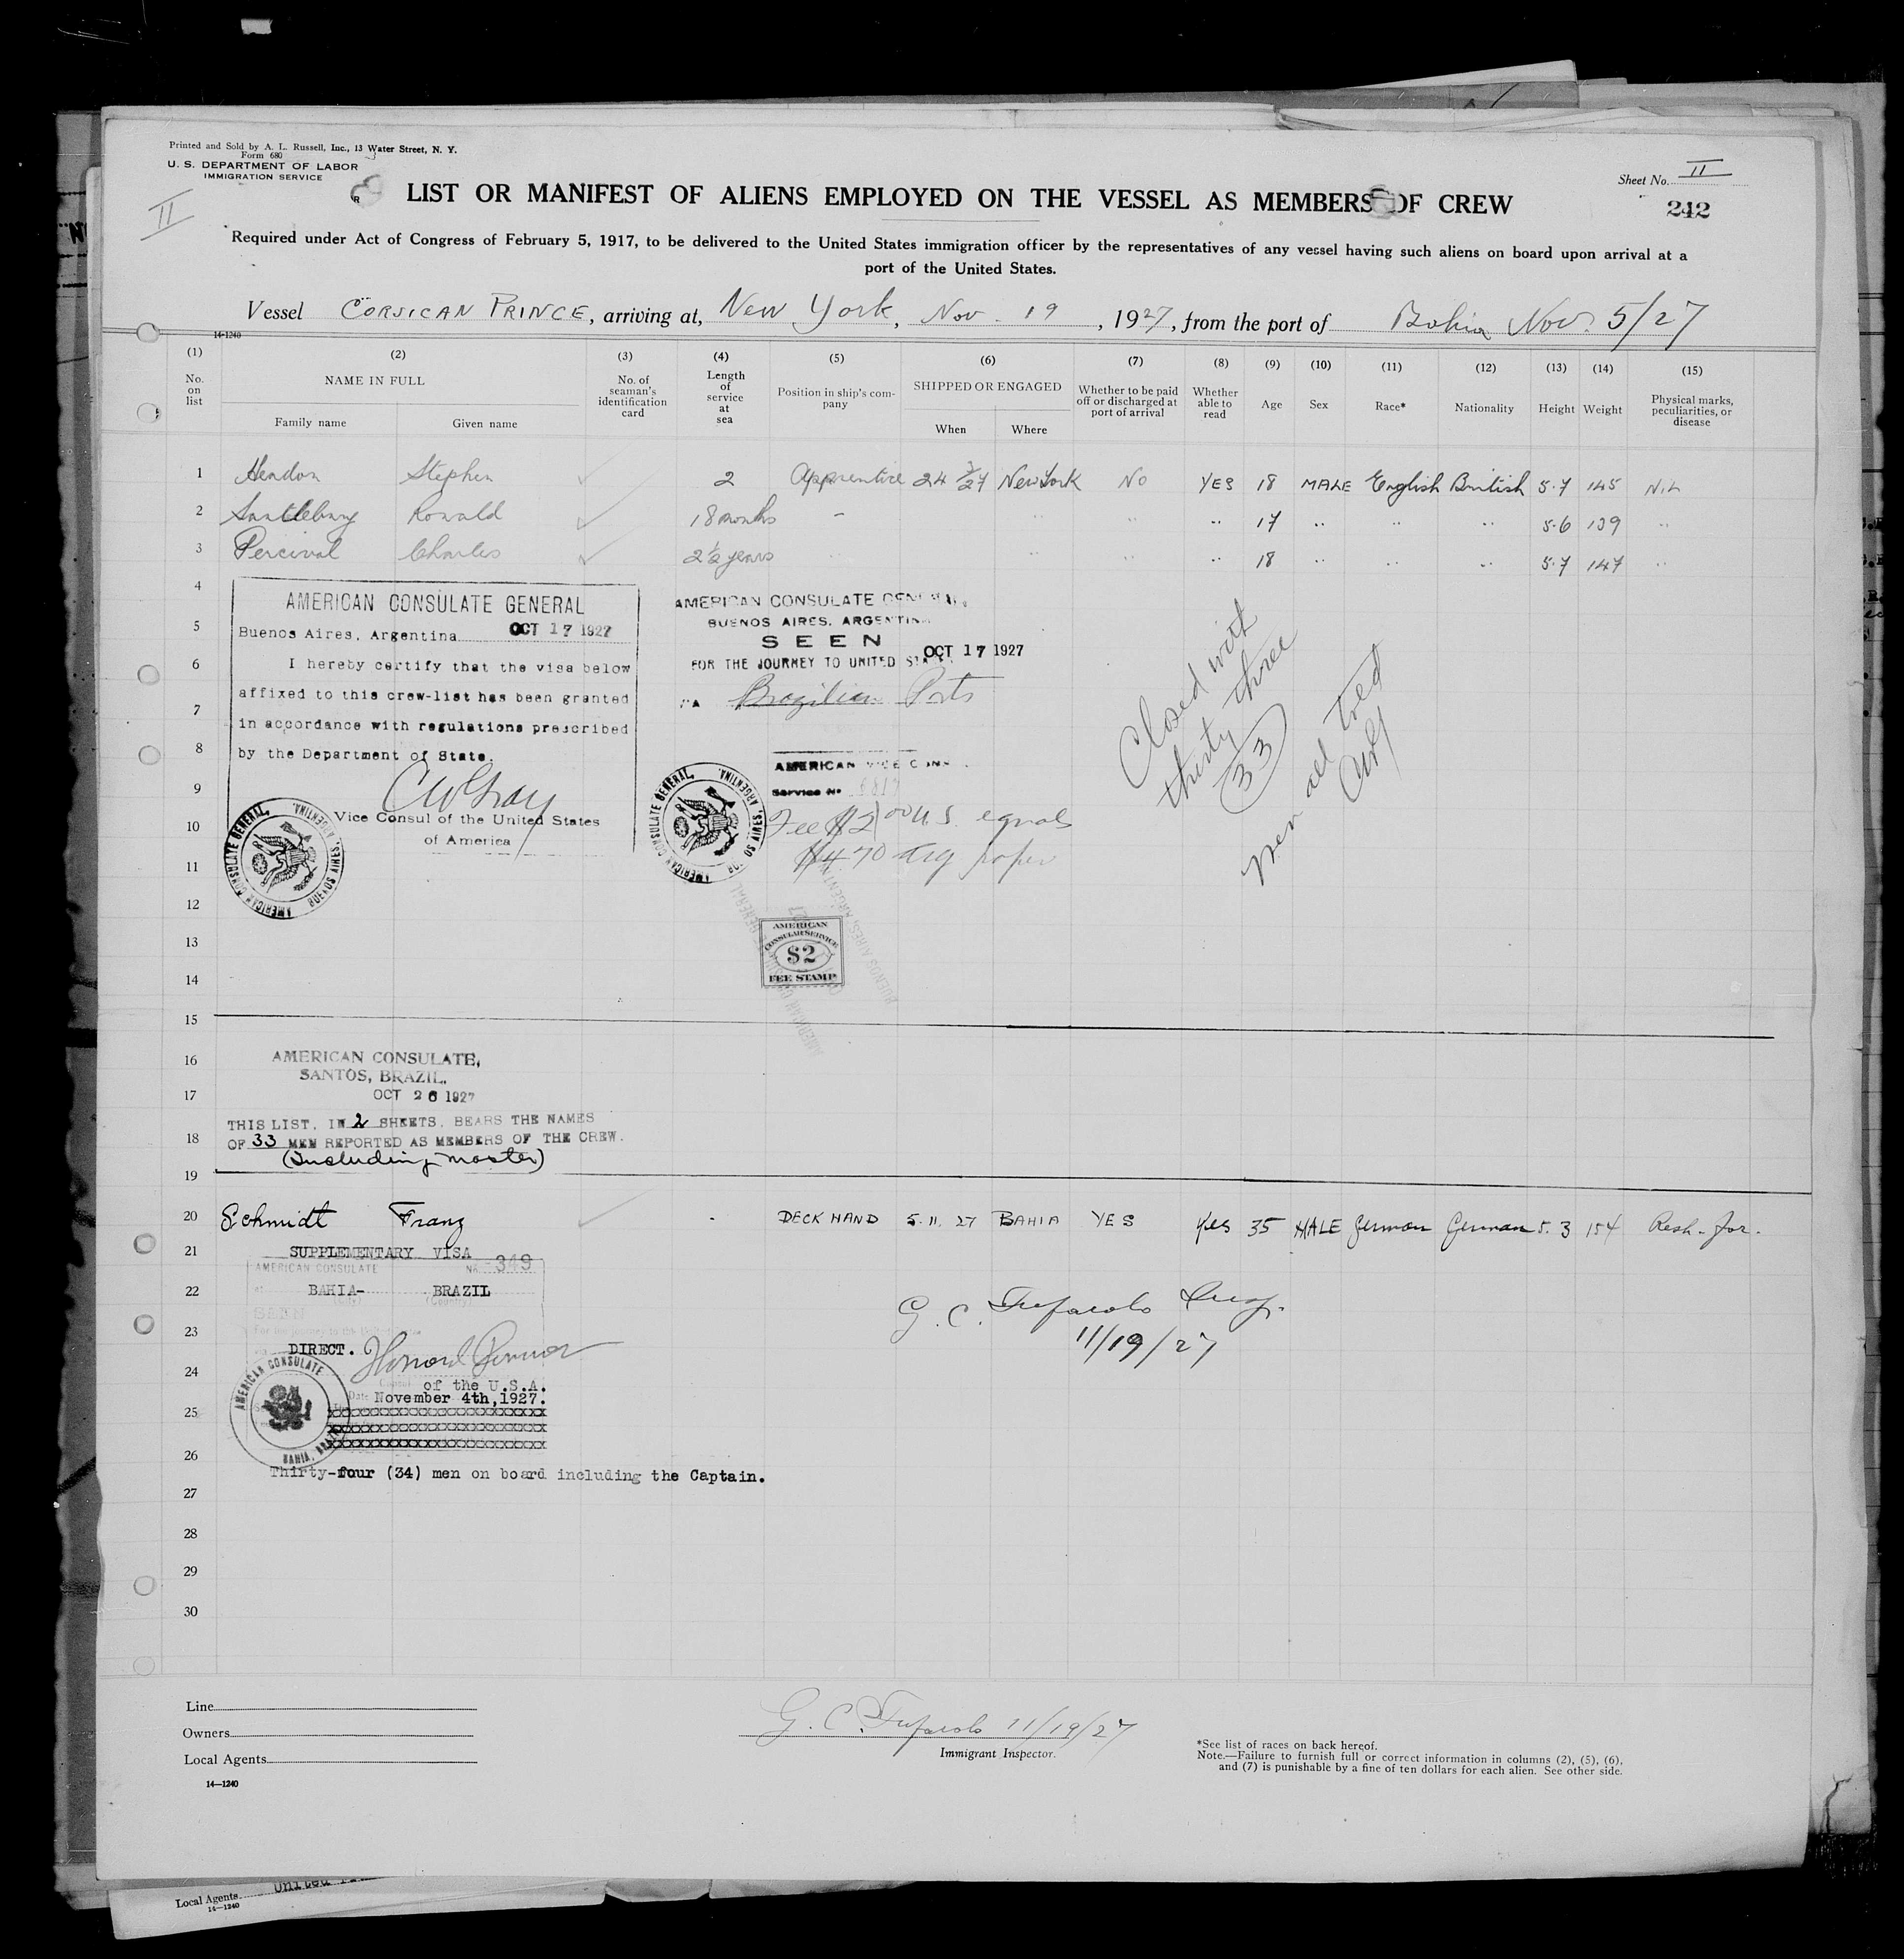 Printed and Sold by A. L. Russell, Inc., 13 Water Street, N. Y.
Form 680
U. S. DEPARTMENT OF LABOR
IMMIGRATION SERVICE
II
Sheet No. II
LIST OR MANIFEST OF ALIENS EMPLOYED ON THE VESSEL AS MEMBERS OF CREW
242
Required under Act of Congress of February 5, 1917, to be delivered to the United States immigration officer by the representatives of any vessel having such aliens on board upon arrival at a
port of the United States.
Vessel CORSICAN PRINCE, arriving at, New York, Nov. 19, 1927, from the port of Bahia Nov. 5/27
14-1240
(1) (2) (3) (4) (5) (6) (7) (8) (9) (10) (11) (12) (13) (14) (15)
No. on list
NAME IN FULL
Family name Given name
No. of seaman's identification card
Length of service at sea
Position in ship's company
SHIPPED OR ENGAGED
When Where
Whether to be paid off or discharged at port of arrival
Whether able to read
Age Sex Race* Nationality Height Weight
Physical marks, peculiarities, or disease
1 Hendon Stephen 2 Apprentice 24 3/27 New York No YES 18 MALE English British 5.7 145 Nil
2 Ronald 18 months - " " " 17 " " " 5.6 139 "
3 Percival Charles 2½ years " " " " 18 " " " 5.7 147 "
4
AMERICAN CONSULATE GENERAL
5 Buenos Aires, Argentina OCT 17 1927
6 I hereby certify that the visa below
affixed to this crew-list has been granted
7 in accordance with regulations prescribed
8 by the Department of State.
9 C W Gray
10 Vice Consul of the United States
of America
11
AMERICAN CONSULATE GENERAL BUENOS AIRES, ARGENTINA.
AMERICAN CONSULATE GENERAL
BUENOS AIRES, ARGENTINA
SEEN
OCT 17 1927
FOR THE JOURNEY TO UNITED STATES
VIA Brazilian Ports
AMERICAN VICE CONS
Service No
Fee $2.00 U.S. equals
$4.70 Arg paper
AMERICAN CONSULATE GENERAL BUENOS AIRES, ARGENTINA.
AMERICAN
CONSULAR SERVICE
$2
FEE STAMP
Closed with
thirty three
(33)
men all told
CWG
12
13
14
15
16 AMERICAN CONSULATE,
SANTOS, BRAZIL.
17 OCT 26 1927
THIS LIST, IN 2 SHEETS, BEARS THE NAMES
18 OF 33 MEN REPORTED AS MEMBERS OF THE CREW.
(Including master)
19
20 Schmidt Franz DECK HAND 5.11.27 BAHIA YES Yes 35 MALE German German 5.3 154
21 SUPPLEMENTARY VISA
AMERICAN CONSULATE No. 349
22 BAHIA- BRAZIL
(City) (Country)
SEEN
23 For the journey to the United States
DIRECT.
24
Consul of the U.S.A.
Date November 4th, 1927.
25 xxxxxxxxxxxxxxxxxxxxxxxx
xxxxxxxxxxxxxxxxxxxxxxxx
xxxxxxxxxxxxxxxxxxxxxxxx
AMERICAN CONSULATE BAHIA, BRAZIL
26
Thirty-four (34) men on board including the Captain.
G. C. Insp.
11/19/27
27
28
29
30
Line
Owners
Local Agents
14—1240
G. C. 11/19/27
Immigrant Inspector.
*See list of races on back hereof.
Note.—Failure to furnish full or correct information in columns (2), (5), (6),
and (7) is punishable by a fine of ten dollars for each alien. See other side.
Local Agents
14—1240